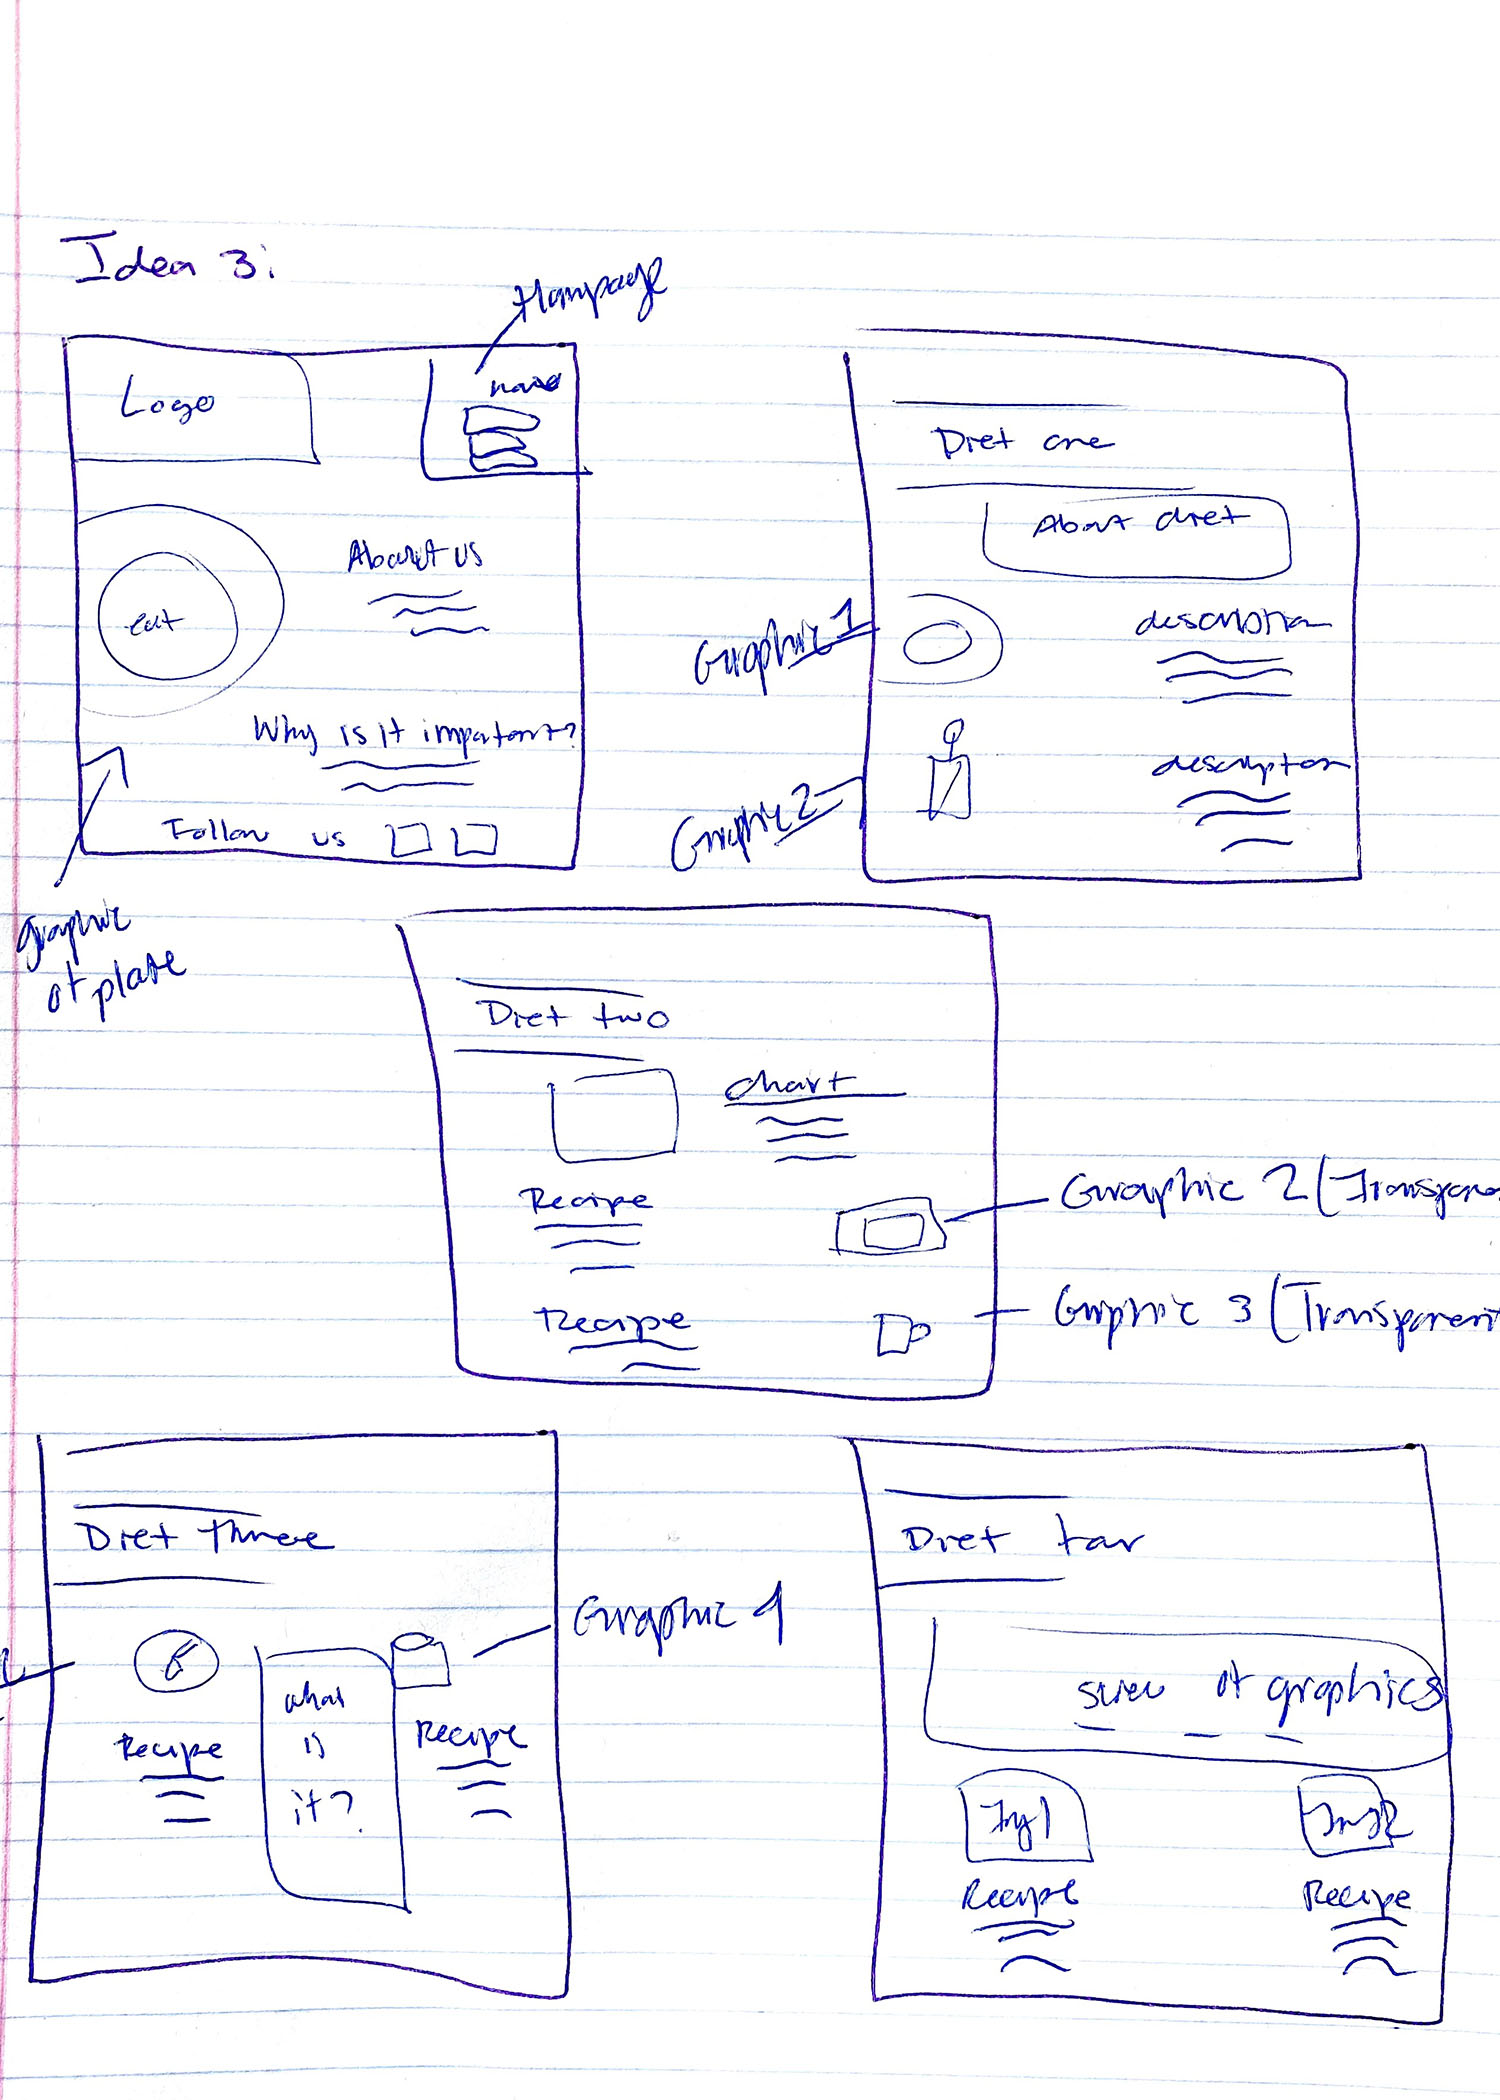 Idea 3:
Homepage
Logo
eat
About us
Why is it important?
Follow us
graphic
of plate
Diet one
About diet
Graphic 1
description
Graphic 2
description
Diet two
chart
Recipe
Graphic 2 (Transparen
Recipe
Graphic 3 (Transparent
Diet three
Graphic 4
what
is
it?
Recipe
Recipe
Diet four
of graphics
Img 1
Img 2
Recipe
Recipe